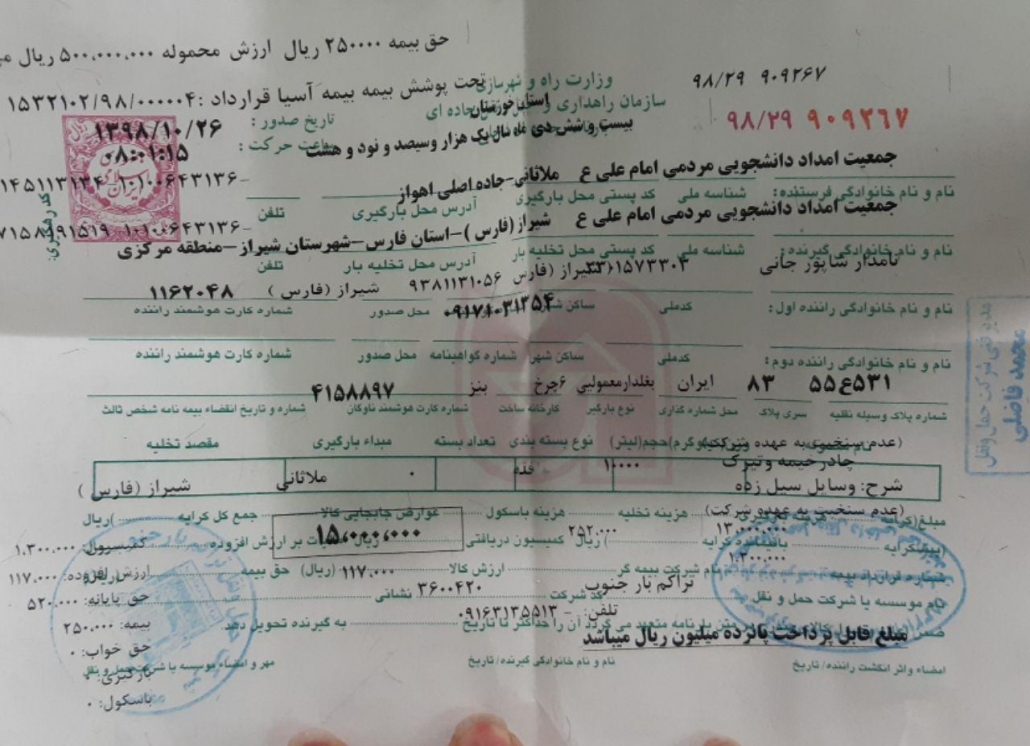 حق بیمه ۲۵۰۰۰۰ ریال ارزش محموله ۵۰۰,۰۰۰,۰۰۰ ریال
۹۸/۲۹ ۹۰۹۲۶۷
وزارت راه و شهرسازی
تحت پوشش بیمه بیمه آسیا قرارداد :۱۵۳۲۱۰۲/۹۸/۰۰۰۰۰۴
سازمان راهداری و
جاده ای
استان خوزستان
۹۸/۲۹ ۹۰۹۲۶۷
تاریخ صدور : ۱۳۹۸/۱۰/۲۶
بیست و شش دی ماه سال یک هزار و سیصد و نود و هشت
ساعت حرکت : ۰۸:۰۱:۱۵
جمعیت امداد دانشجویی مردمی امام علی ع ملاثانی-جاده اصلی اهواز
نام و نام خانوادگی فرستنده: شناسه ملی کد پستی محل بارگیری آدرس محل بارگیری تلفن
جمعیت امداد دانشجویی مردمی امام علی ع شیراز (فارس )-استان فارس-شهرستان شیراز-منطقه مرکزی
نام و نام خانوادگی گیرنده: شناسه ملی کد پستی محل تخلیه بار آدرس محل تخلیه بار تلفن
نامدار شاپور جانی شیراز (فارس ۹۳۸۱۱۳۱۰۵۶ شیراز (فارس ) ۱۱۶۲۰۴۸
نام و نام خانوادگی راننده اول: کدملی ساکن ۰۹۱۷۱۰۳۱۲۵۴ محل صدور شماره کارت هوشمند راننده
نام و نام خانوادگی راننده دوم: کدملی ساکن شهر شماره گواهینامه محل صدور شماره کارت هوشمند راننده
۵۳۱ع۵۵ ۸۳ ایران بغلدارمعمولیی ۶چرخ بنز ۴۱۵۸۸۹۷
شماره پلاک وسیله نقلیه سری پلاک محل شماره گذاری نوع بارگیر کارخانه ساخت شماره کارت هوشمند ناوگان شماره و تاریخ انقضاء بیمه نامه شخص ثالث
(عدم سنخیت به عهده شرکت) حجم(لیتر) نوع بسته بندی تعداد بسته مبداء بارگیری مقصد تخلیه
چادرخیمه وتیرک ۱۰۰۰۰ فله ۰ ملاثانی شیراز (فارس )
شرح: وسایل سیل زده
(عدم سنخیت به عهده شرکت) هزینه تخلیه هزینه باسکول عوارض جابجایی کالا جمع کل کرایه ریال
۱۳,۰۰۰,۰۰۰ ۲۵۲,۰۰۰ ۱۵,۰۰۰,۰۰۰
پیشکرایه باقیمانده کرایه ریال کمیسیون دریافتی ریال بر ارزش افزوده کمیسیون: ۱,۳۰۰,۰۰۰
۱,۳۰۰,۰۰۰
شماره قرارداد بیمه نام شرکت بیمه گر ارزش کالا ۱۱۷,۰۰۰ (ریال) حق بیمه ارزش افزوده: ۱۱۷,۰۰۰
نام موسسه یا شرکت حمل و نقل تراکم بار جنوب کد شرکت ۳۶۰۰۴۲۰ نشانی حق پایانه: ۵۲۰,۰۰۰
تلفن: - ۰۹۱۶۳۱۳۵۵۱۳ به گیرنده تحویل دهد بیمه: ۲۵۰,۰۰۰
مبلغ قابل پرداخت پانزده میلیون ریال میباشد
حق خواب: ۰
امضاء و اثر انگشت راننده/تاریخ نام و نام خانوادگی گیرنده/تاریخ مهر و امضاء موسسه یا شرکت حمل و نقل
بارگیری: ۰
باسکول: ۰
مدیر فنی شرکت حمل و نقل
محمد فاضلی